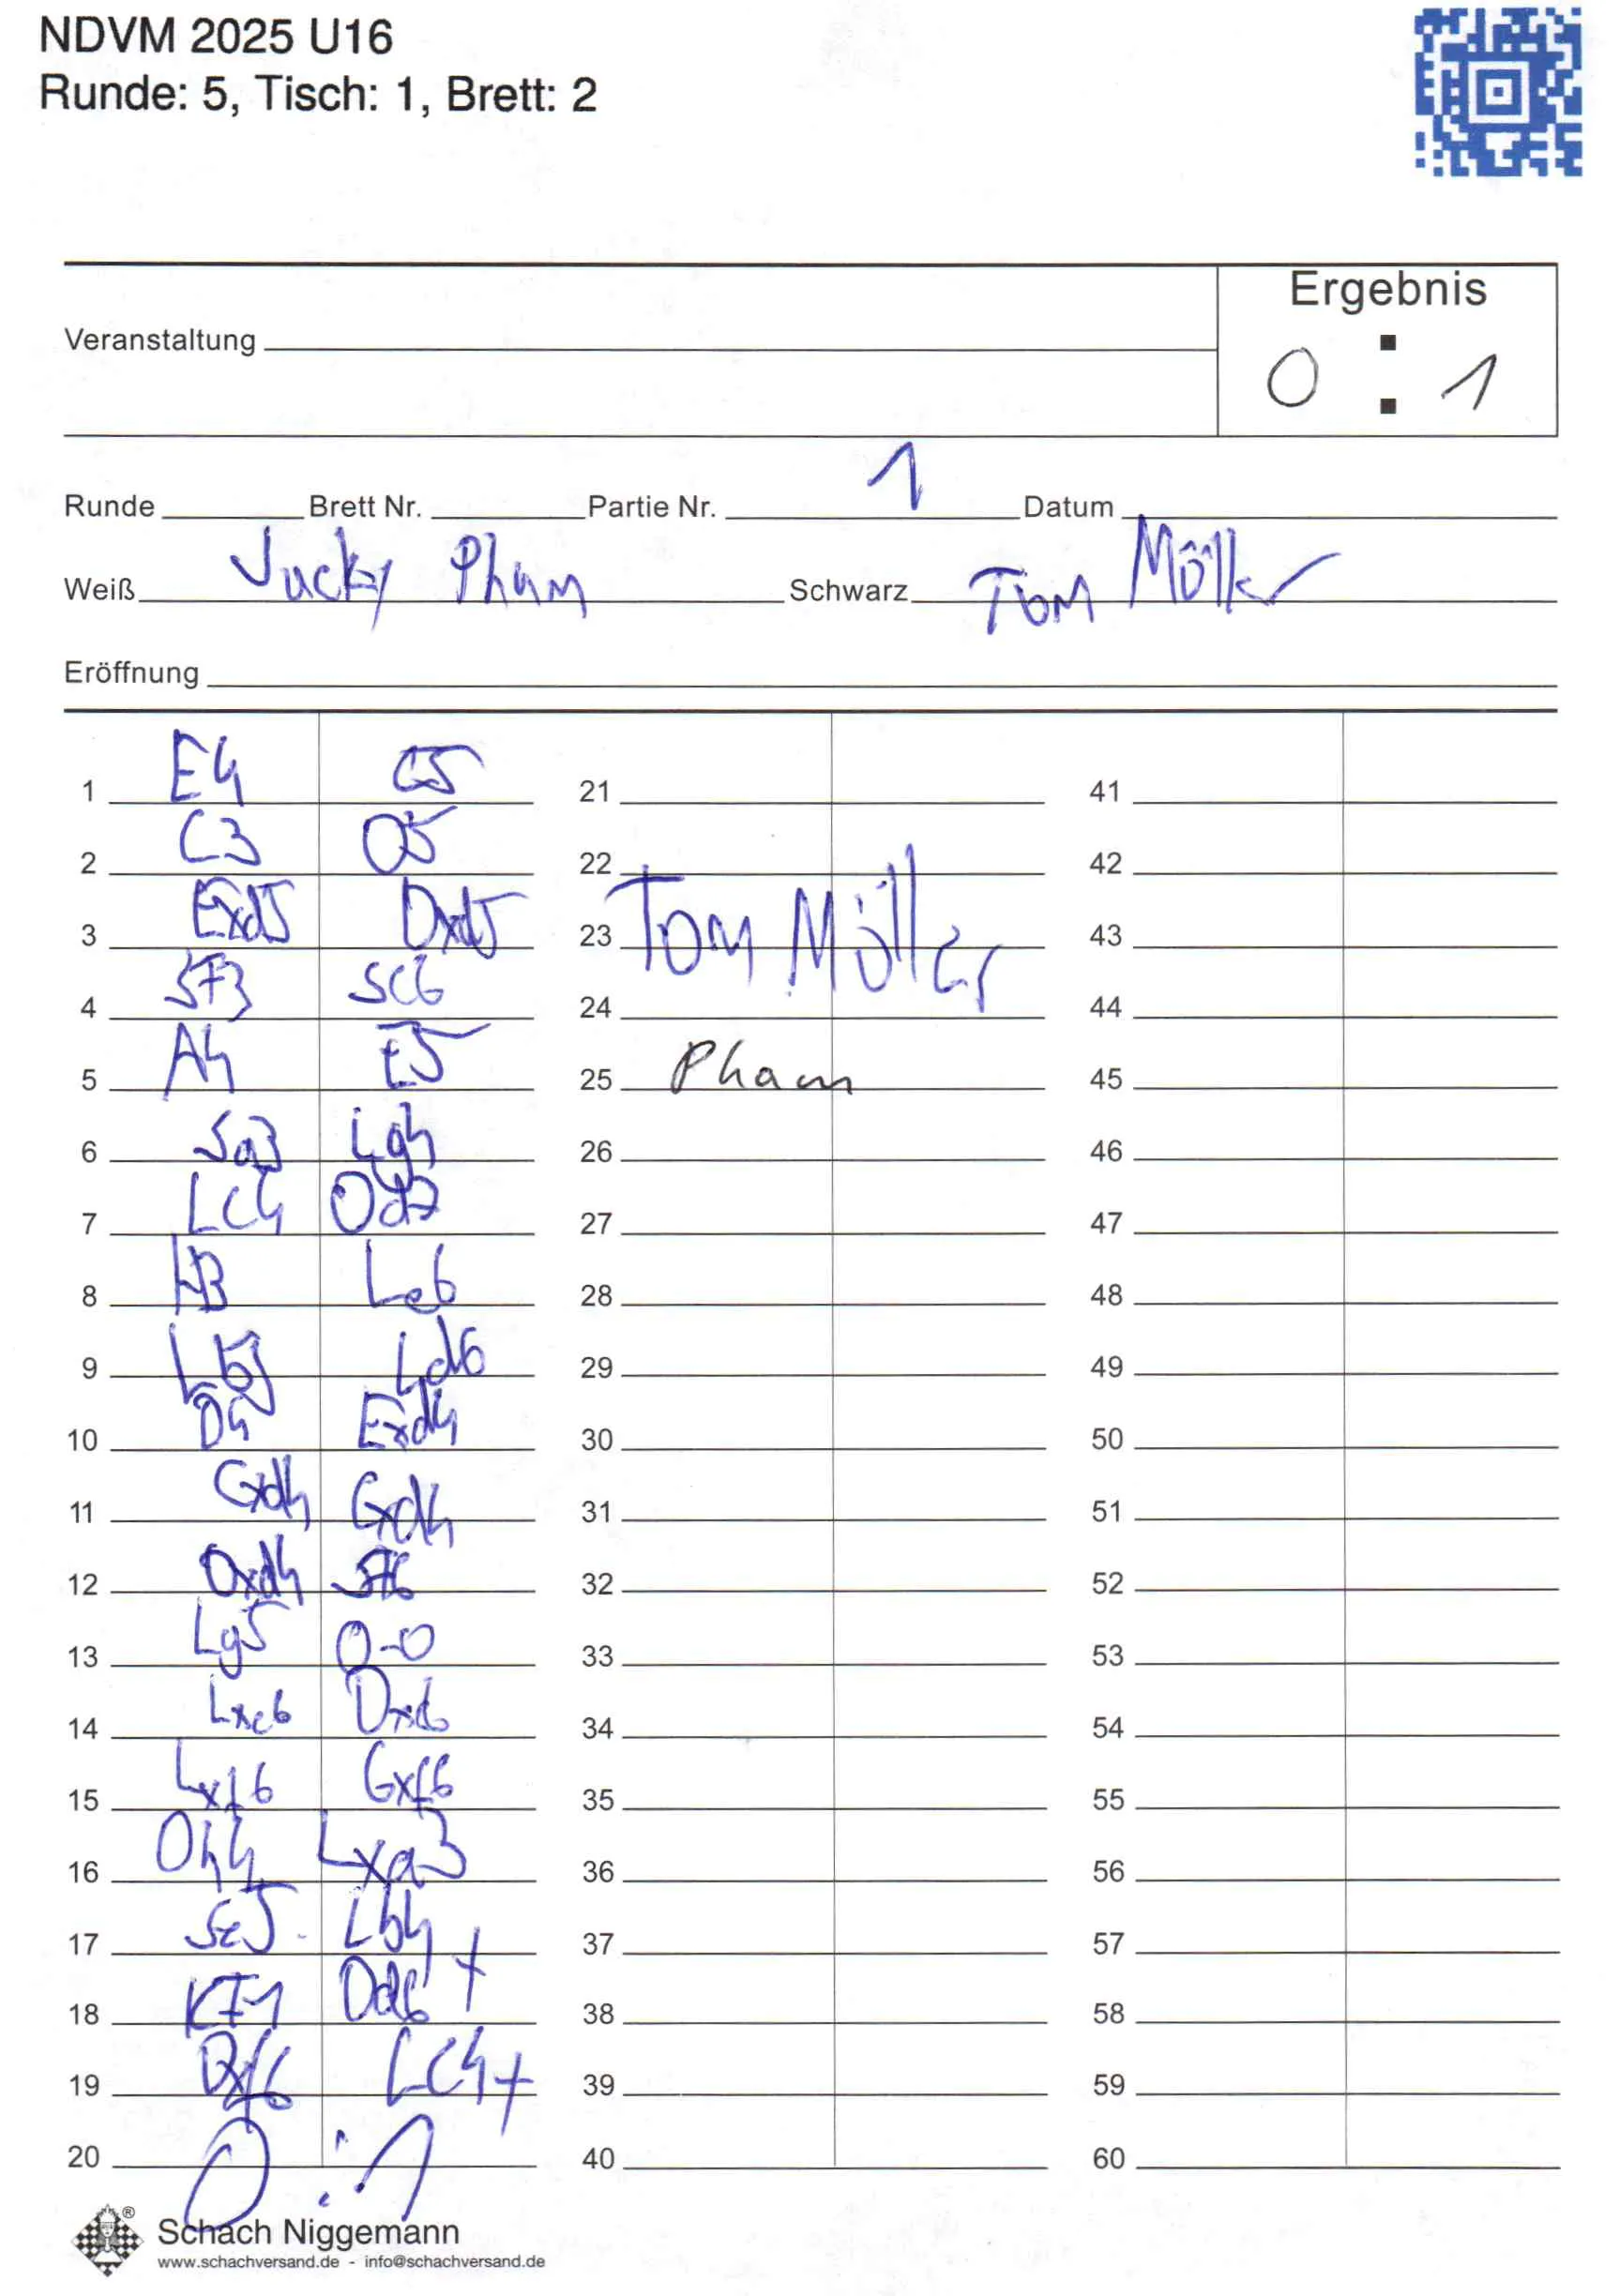 NDVM 2025 U16
Runde: 5, Tisch: 1, Brett: 2
Ergebnis
Veranstaltung
0 : 1
1
Runde Brett Nr. Partie Nr. Datum
Weiß Jucky Pham Schwarz Tom Möller
Eröffnung
1 E4 C5 21 41
2 C3 D5 22 42
3 Exd5 Dxd5 23 Tom Möller 43
4 SF3 SC6 24 44
5 A4 E5 25 Pham 45
6 Sa3 Lg4 26 46
7 LC4 Dd7 27 47
8 HB Le6 28 48
9 Lb5 Ld6 29 49
10 D4 Exd4 30 50
11 Cxd4 Cxd4 31 51
12 Dxd4 Sf6 32 52
13 Lg5 0-0 33 53
14 Lxc6 Dxc6 34 54
15 Lxf6 Gxf6 35 55
16 Dh4 Lxa3 36 56
17 Se5 Lb4+ 37 57
18 KF1 Dd6 38 58
19 Dxf6 LC4+ 39 59
20 0:1 40 60
Schach Niggemann
www.schachversand.de - info@schachversand.de